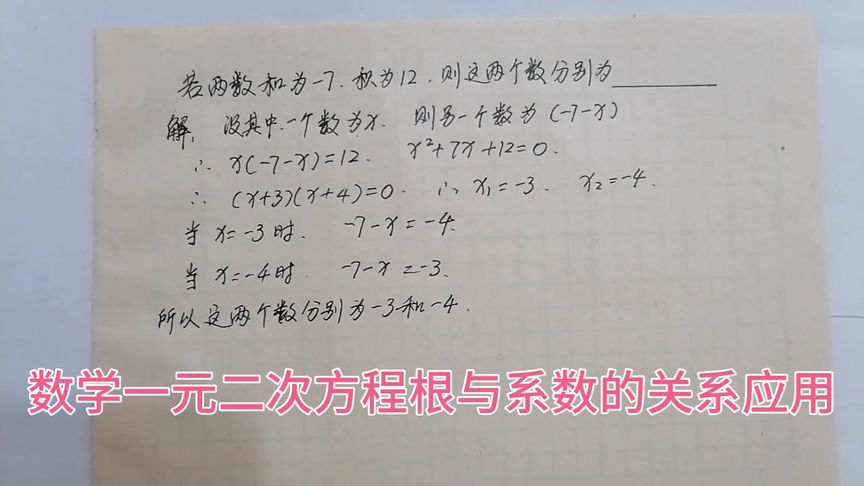 若两数和为-7.积为12.则这两个数分别为________
解: 设其中一个数为x. 则另一个数为(-7-x)
∴ x(-7-x)=12. x²+7x+12=0.
∴ (x+3)(x+4)=0. ∴ x₁=-3. x₂=-4.
当 x=-3时. -7-x=-4.
当 x=-4时. -7-x=-3.
所以这两个数分别为-3和-4.
数学一元二次方程根与系数的关系应用